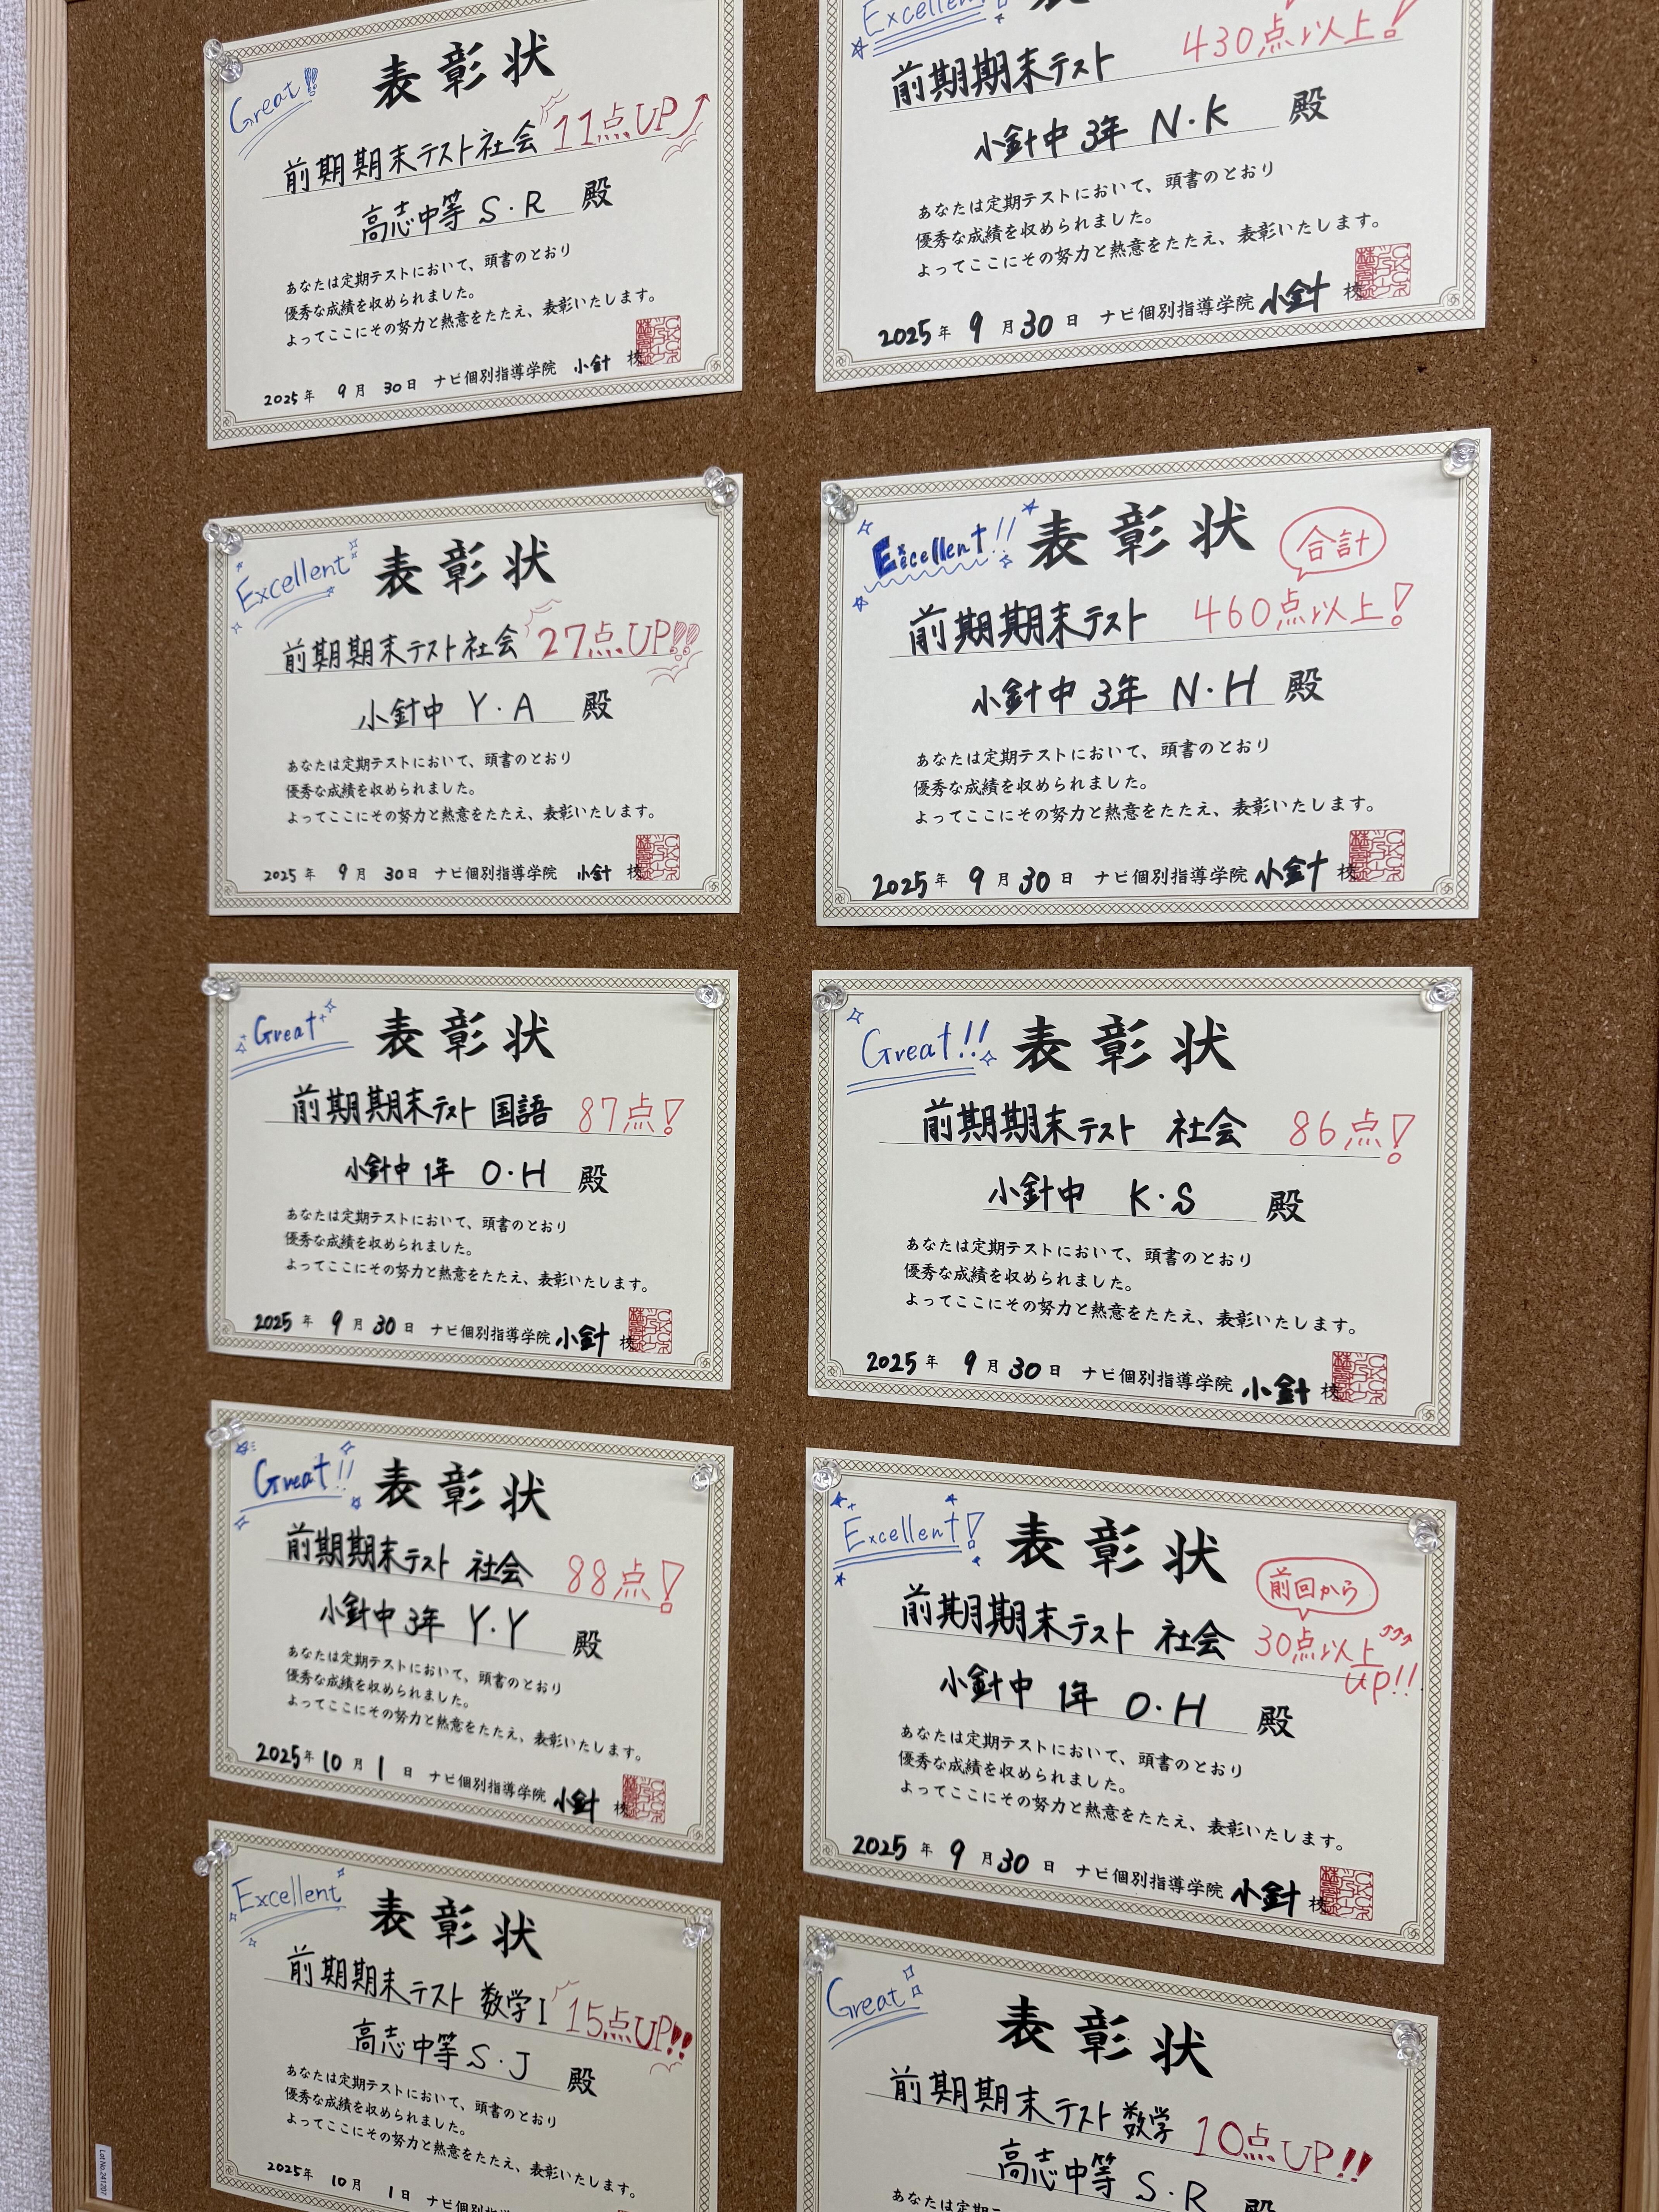 Great!!
表彰状
前期期末テスト社会 11点UP
高志中等 S・R 殿
あなたは定期テストにおいて、頭書のとおり
優秀な成績を収められました。
よってここにその努力と熱意をたたえ、表彰いたします。
2025年 9月 30日 ナビ個別指導学院 小針 校
Excellent
表彰状
前期期末テスト社会 27点UP!!
小針中 Y・A 殿
あなたは定期テストにおいて、頭書のとおり
優秀な成績を収められました。
よってここにその努力と熱意をたたえ、表彰いたします。
2025年 9月 30日 ナビ個別指導学院 小針 校
Great
表彰状
前期期末テスト 国語 87点!
小針中 1年 O・H 殿
あなたは定期テストにおいて、頭書のとおり
優秀な成績を収められました。
よってここにその努力と熱意をたたえ、表彰いたします。
2025年 9月 30日 ナビ個別指導学院 小針 校
Great!!
表彰状
前期期末テスト 社会 88点!
小針中 3年 Y.Y 殿
あなたは定期テストにおいて、頭書のとおり
優秀な成績を収められました。
よってここにその努力と熱意をたたえ、表彰いたします。
2025年 10月 1日 ナビ個別指導学院 小針 校
Excellent
表彰状
前期期末テスト 数学I 15点UP!!
高志中等 S・J 殿
あなたは定期テストにおいて、頭書のとおり
優秀な成績を収められました。
よってここにその努力と熱意をたたえ、表彰いたします。
2025年 10月 1日 ナビ個別指導学院
Excellent
前期期末テスト 430点以上!
小針中 3年 N・K 殿
あなたは定期テストにおいて、頭書のとおり
優秀な成績を収められました。
よってここにその努力と熱意をたたえ、表彰いたします。
2025年 9月 30日 ナビ個別指導学院 小針 校
Excellent!!
表彰状
合計
前期期末テスト 460点以上!
小針中 3年 N・H 殿
あなたは定期テストにおいて、頭書のとおり
優秀な成績を収められました。
よってここにその努力と熱意をたたえ、表彰いたします。
2025年 9月 30日 ナビ個別指導学院 小針 校
Great!!
表彰状
前期期末テスト 社会 86点!
小針中 K・S 殿
あなたは定期テストにおいて、頭書のとおり
優秀な成績を収められました。
よってここにその努力と熱意をたたえ、表彰いたします。
2025年 9月 30日 ナビ個別指導学院 小針 校
Excellent!
表彰状
前回から
前期期末テスト 社会 30点以上
up!!
小針中 1年 O・H 殿
あなたは定期テストにおいて、頭書のとおり
優秀な成績を収められました。
よってここにその努力と熱意をたたえ、表彰いたします。
2025年 9月 30日 ナビ個別指導学院 小針 校
Great
表彰状
前期期末テスト 数学 10点UP!!
高志中等 S・R 殿
あなたは定期テスト